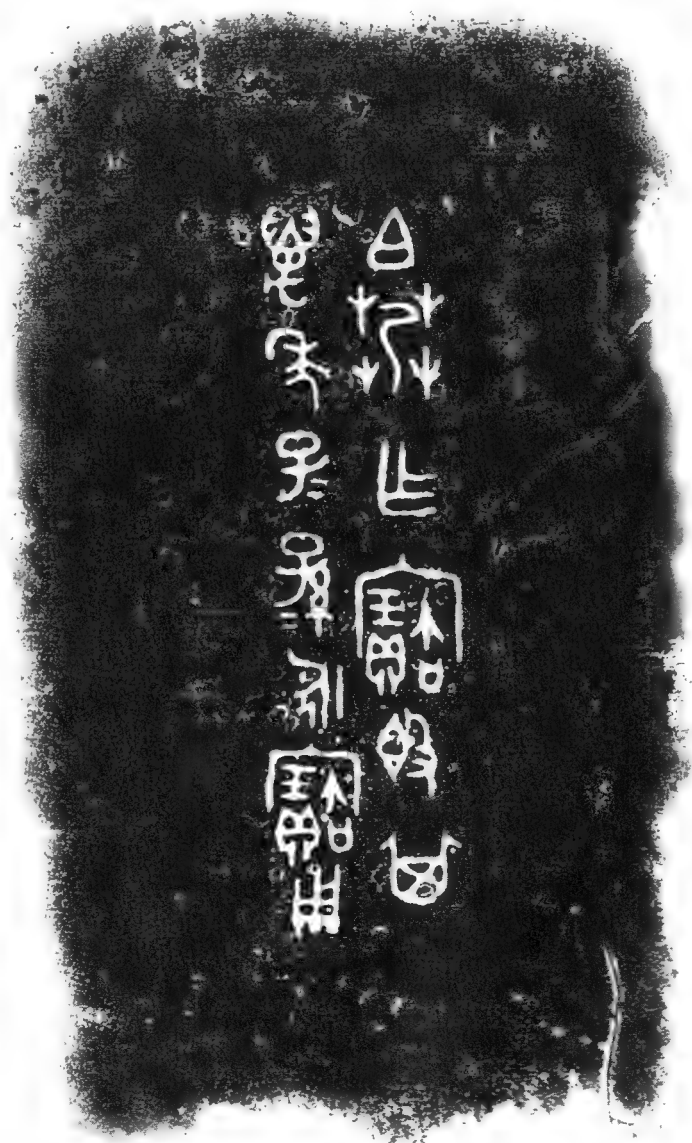 白乍寶𣪘其
萬年子=孫=永寶用